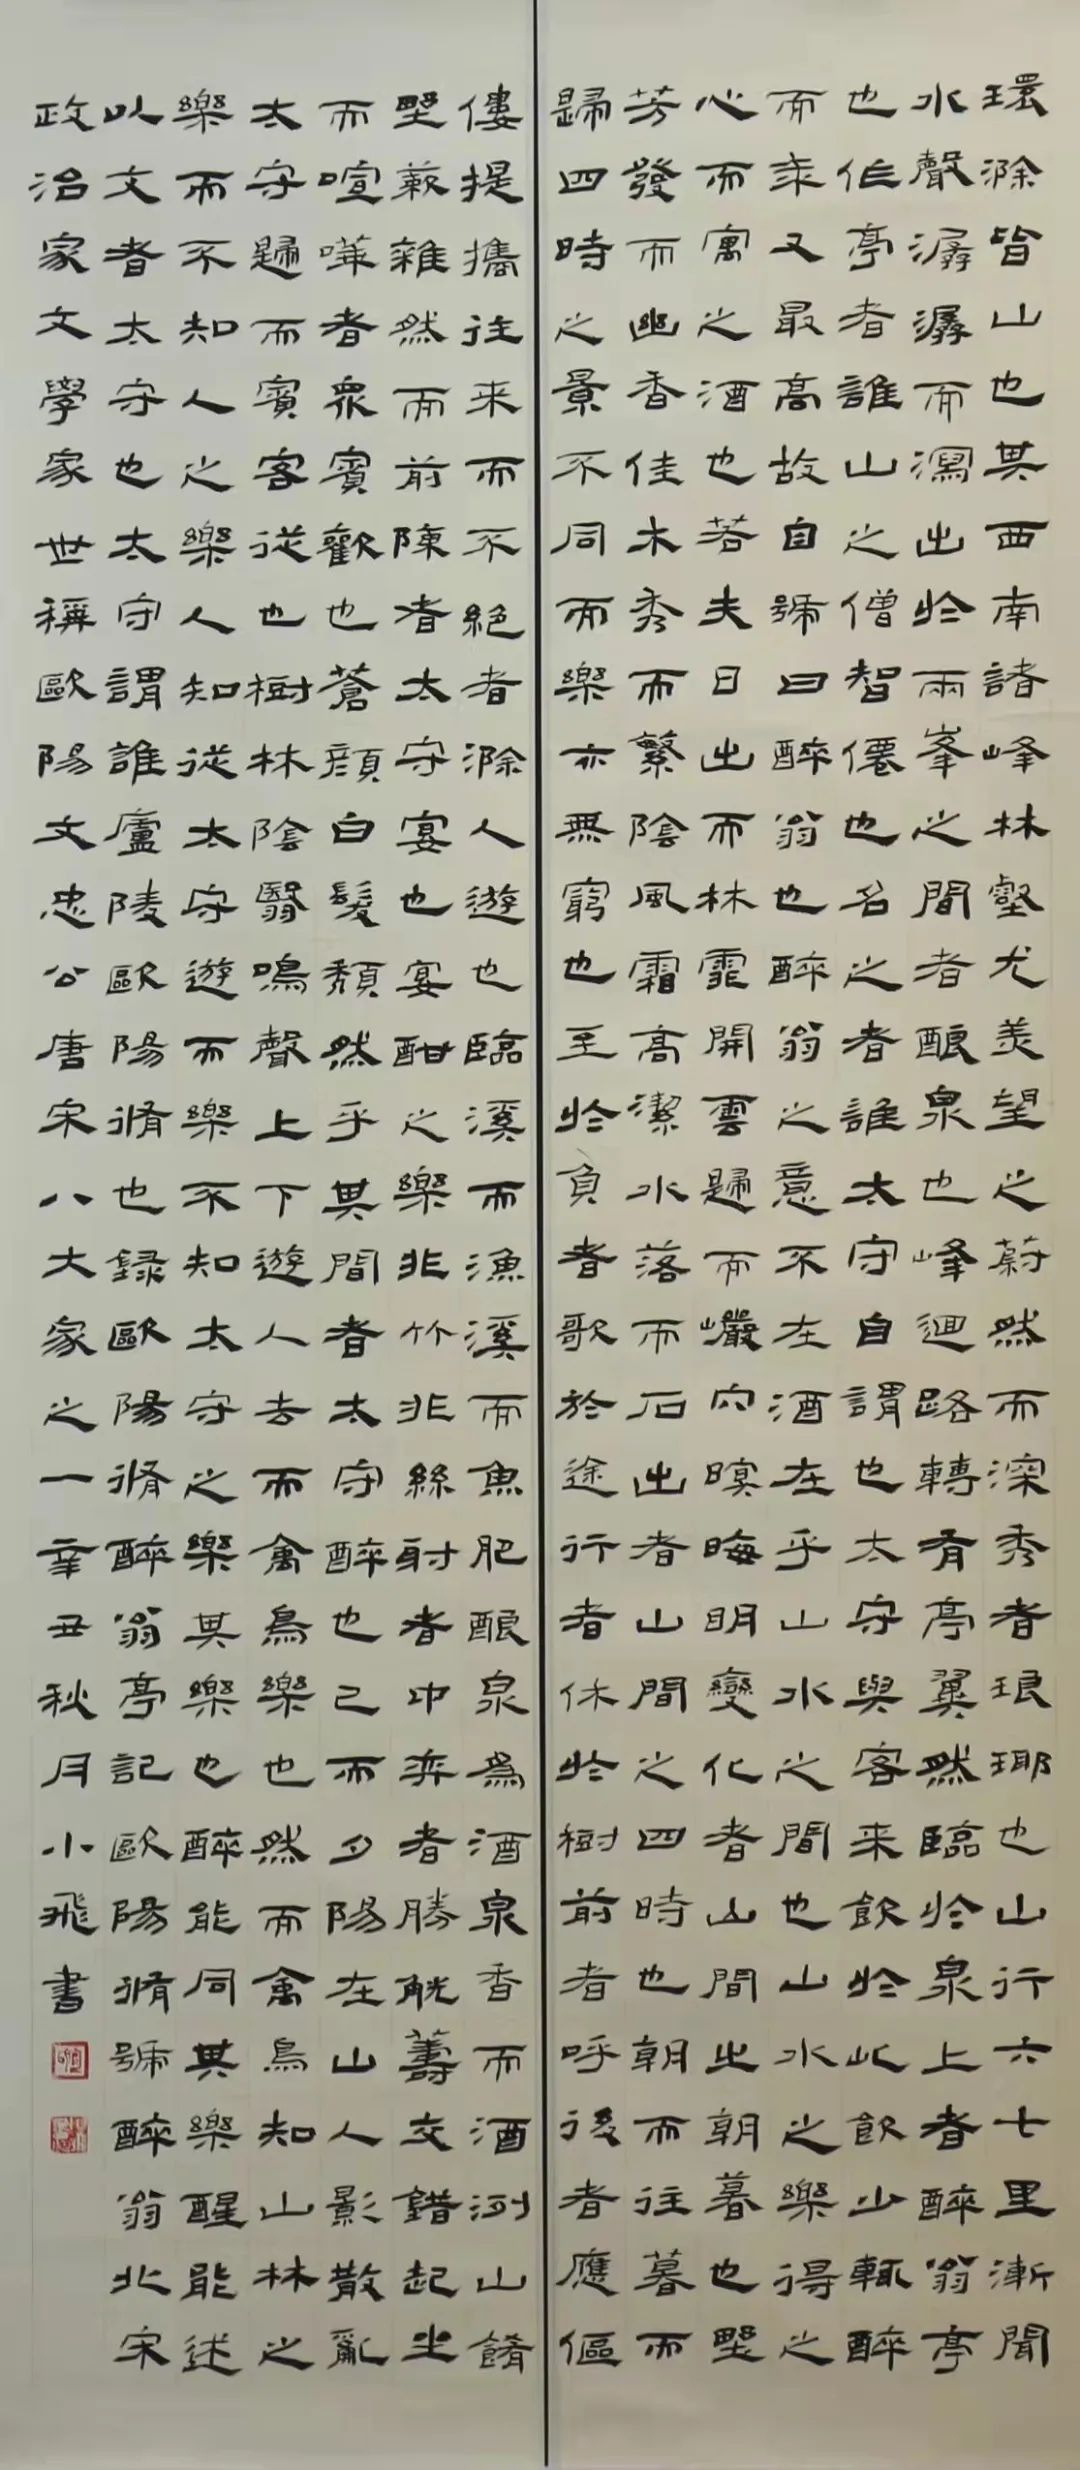 環滁皆山也其西南諸峰林壑尤美望之蔚然而深秀者琅瑘也山行六七里漸聞
水聲潺潺而瀉出於兩峯之間者酿泉也峰迴路轉有亭翼然臨於泉上者醉翁亭
也作亭者誰山之僧智僊也名之者誰太守自謂也太守與客来飲於此飲少輒醉
而年又最高故自號曰醉翁也醉翁之意不在酒在乎山水之間也山水之樂得之
心而寓之酒也若夫日出而林霏開雲歸而巖穴暝晦明變化者山間之朝暮也野
芳發而幽香佳木秀而繁陰風霜高潔水落而石出者山間之四時也朝而往暮而
歸四時之景不同而樂亦無窮也至於負者歌於途行者休於樹前者呼後者應傴
僂提攜往来而不絕者滁人遊也臨溪而漁溪而魚肥酿泉為酒泉香而酒洌山餚
野蔌雜然而前陳者太守宴也宴酣之樂非竹非絲射者中弈者勝觥籌交錯起坐
而喧嘩者眾賓歡也蒼顏白髮頹然乎其間者太守醉也已而夕陽在山人影散亂
太守歸而賓客從也樹林陰翳鳴聲上下遊人去而禽鳥樂也然而禽鳥知山林之
樂而不知人之樂人知從太守遊而樂不知太守之樂其樂也醉能同其樂醒能述
以文者太守也太守謂誰廬陵歐陽脩也錄歐陽脩醉翁亭記歐陽脩號醉翁北宋
政治家文學家世稱歐陽文忠公唐宋八大家之一辛丑秋月小飛書